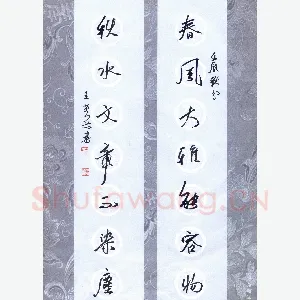 春風大雅能容物
秋水文章不染塵
Shufawang.cn